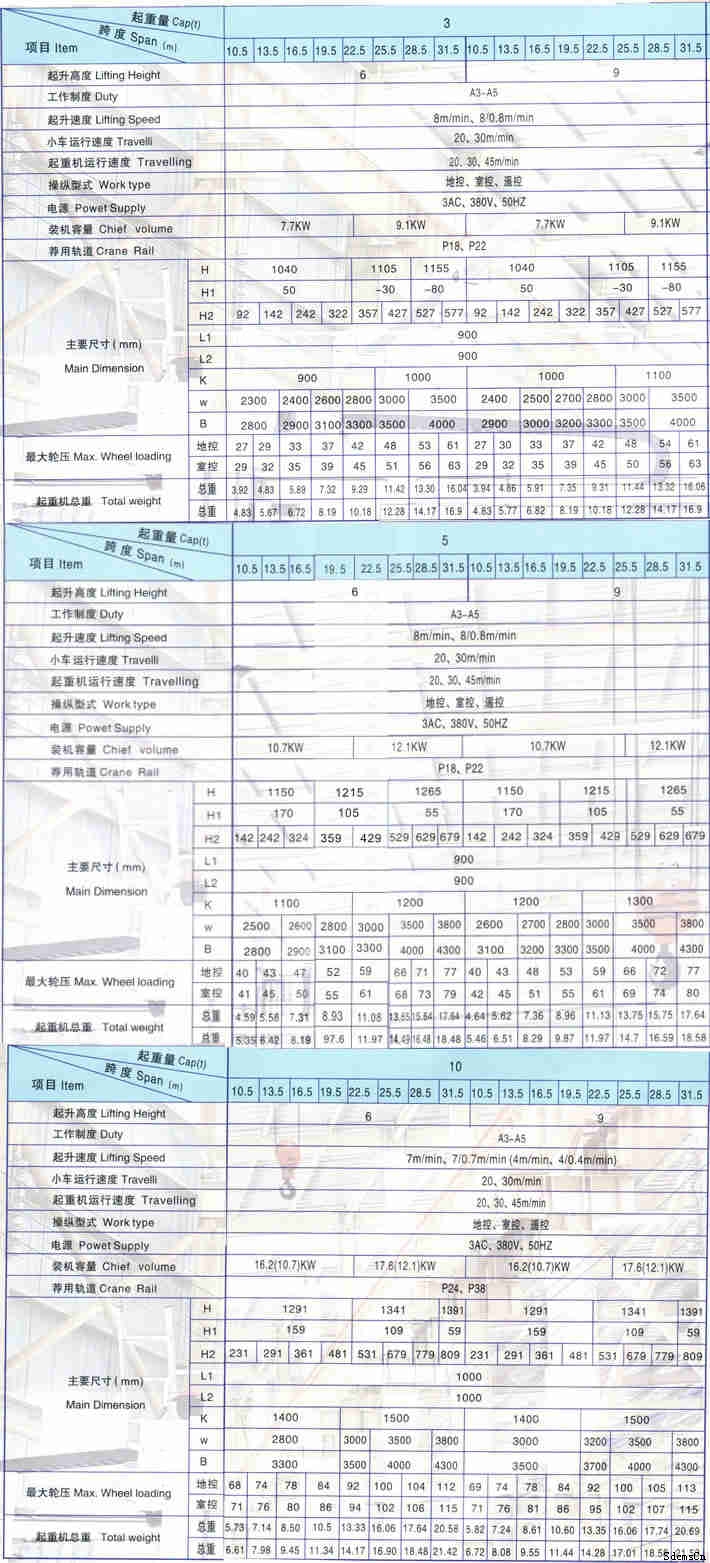 起重量 Cap(t) 3
跨度 Span (m)
项目 Item 10.5 13.5 16.5 19.5 22.5 25.5 28.5 31.5 10.5 13.5 16.5 19.5 22.5 25.5 28.5 31.5
起升高度 Lifting Height 6 9
工作制度 Duty A3-A5
起升速度 Lifting Speed 8m/min、8/0.8m/min
小车运行速度 Travelli 20、30m/min
起重机运行速度 Travelling 20、30、45m/min
操纵型式 Work type 地控、室控、遥控
电源 Powet Supply 3AC、380V、50HZ
装机容量 Chief volume 7.7KW 9.1KW 7.7KW 9.1KW
荐用轨道 Crane Rail P18、P22
H 1040 1105 1155 1040 1105 1155
H1 50 -30 -80 50 -30 -80
H2 92 142 242 322 357 427 527 577 92 142 242 322 357 427 527 577
主要尺寸(mm) L1 900
Main Dimension L2 900
K 900 1000 1000 1100
w 2300 2400 2600 2800 3000 3500 2400 2500 2700 2800 3000 3500
B 2800 2900 3100 3300 3500 4000 2900 3000 3200 3300 3500 4000
最大轮压 Max. Wheel loading 地控 27 29 33 37 42 48 53 61 27 30 33 37 42 48 54 61
室控 29 32 35 39 45 51 56 63 29 32 35 39 45 50 56 63
起重机总重 Total weight 总重 3.92 4.83 5.89 7.32 9.29 11.42 13.30 16.04 3.94 4.86 5.91 7.35 9.31 11.44 13.32 16.06
总重 4.83 5.67 6.72 8.19 10.18 12.28 14.17 16.9 4.83 5.77 6.82 8.19 10.18 12.28 14.17 16.9
起重量 Cap(t) 5
跨度 Span (m)
项目 Item 10.5 13.5 16.5 19.5 22.5 25.5 28.5 31.5 10.5 13.5 16.5 19.5 22.5 25.5 28.5 31.5
起升高度 Lifting Height 6 9
工作制度 Duty A3-A5
起升速度 Lifting Speed 8m/min、8/0.8m/min
小车运行速度 Travelli 20、30m/min
起重机运行速度 Travelling 20、30、45m/min
操纵型式 Work type 地控、室控、遥控
电源 Powet Supply 3AC、380V、50HZ
装机容量 Chief volume 10.7KW 12.1KW 10.7KW 12.1KW
荐用轨道 Crane Rail P18、P22
H 1150 1215 1265 1150 1215 1265
H1 170 105 55 170 105 55
H2 142 242 324 359 429 529 629 679 142 242 324 359 429 529 629 679
主要尺寸(mm) L1 900
Main Dimension L2 900
K 1100 1200 1200 1300
w 2500 2600 2800 3000 3500 3800 2600 2700 2800 3000 3500 3800
B 2800 2900 3100 3300 4000 4300 3100 3200 3300 3500 4000 4300
最大轮压 Max. Wheel loading 地控 40 43 47 52 59 66 71 77 40 43 48 53 59 66 72 77
室控 41 45 50 55 61 68 73 79 42 45 51 55 61 69 74 80
起重机总重 Total weight 总重 4.59 5.56 7.31 8.93 11.08 13.65 15.64 17.64 4.64 5.62 7.36 8.96 11.13 13.75 15.75 17.64
总重 5.35 6.42 8.19 97.6 11.97 14.49 16.48 18.48 5.46 6.51 8.29 9.87 11.97 14.7 16.59 18.58
起重量 Cap(t) 10
跨度 Span (m)
项目 Item 10.5 13.5 16.5 19.5 22.5 25.5 28.5 31.5 10.5 13.5 16.5 19.5 22.5 25.5 28.5 31.5
起升高度 Lifting Height 6 9
工作制度 Duty A3-A5
起升速度 Lifting Speed 7m/min、7/0.7m/min (4m/min、4/0.4m/min)
小车运行速度 Travelli 20、30m/min
起重机运行速度 Travelling 20、30、45m/min
操纵型式 Work type 地控、室控、遥控
电源 Powet Supply 3AC、380V、50HZ
装机容量 Chief volume 16.2(10.7)KW 17.6(12.1)KW 16.2(10.7)KW 17.6(12.1)KW
荐用轨道 Crane Rail P24、P38
H 1291 1341 1391 1291 1341 1391
H1 159 109 59 159 109 59
H2 231 291 361 481 531 679 779 809 231 291 361 481 531 679 779 809
主要尺寸(mm) L1 1000
Main Dimension L2 1000
K 1400 1500 1400 1500
w 2800 3000 3500 3800 3000 3200 3500 3800
B 3300 3500 4000 4300 3500 3700 4000 4300
最大轮压 Max. Wheel loading 地控 68 74 78 84 92 100 104 112 69 74 78 84 92 100 105 113
室控 71 76 80 86 94 102 106 115 71 76 81 86 95 102 107 115
起重机总重 Total weight 总重 5.73 7.14 8.50 10.5 13.33 16.06 17.64 20.58 5.82 7.24 8.61 10.60 13.35 16.06 17.74 20.69
总重 6.61 7.98 9.45 11.34 14.17 16.90 18.48 21.42 6.72 8.08 9.55 11.44 14.28 17.01
SdcmsCn